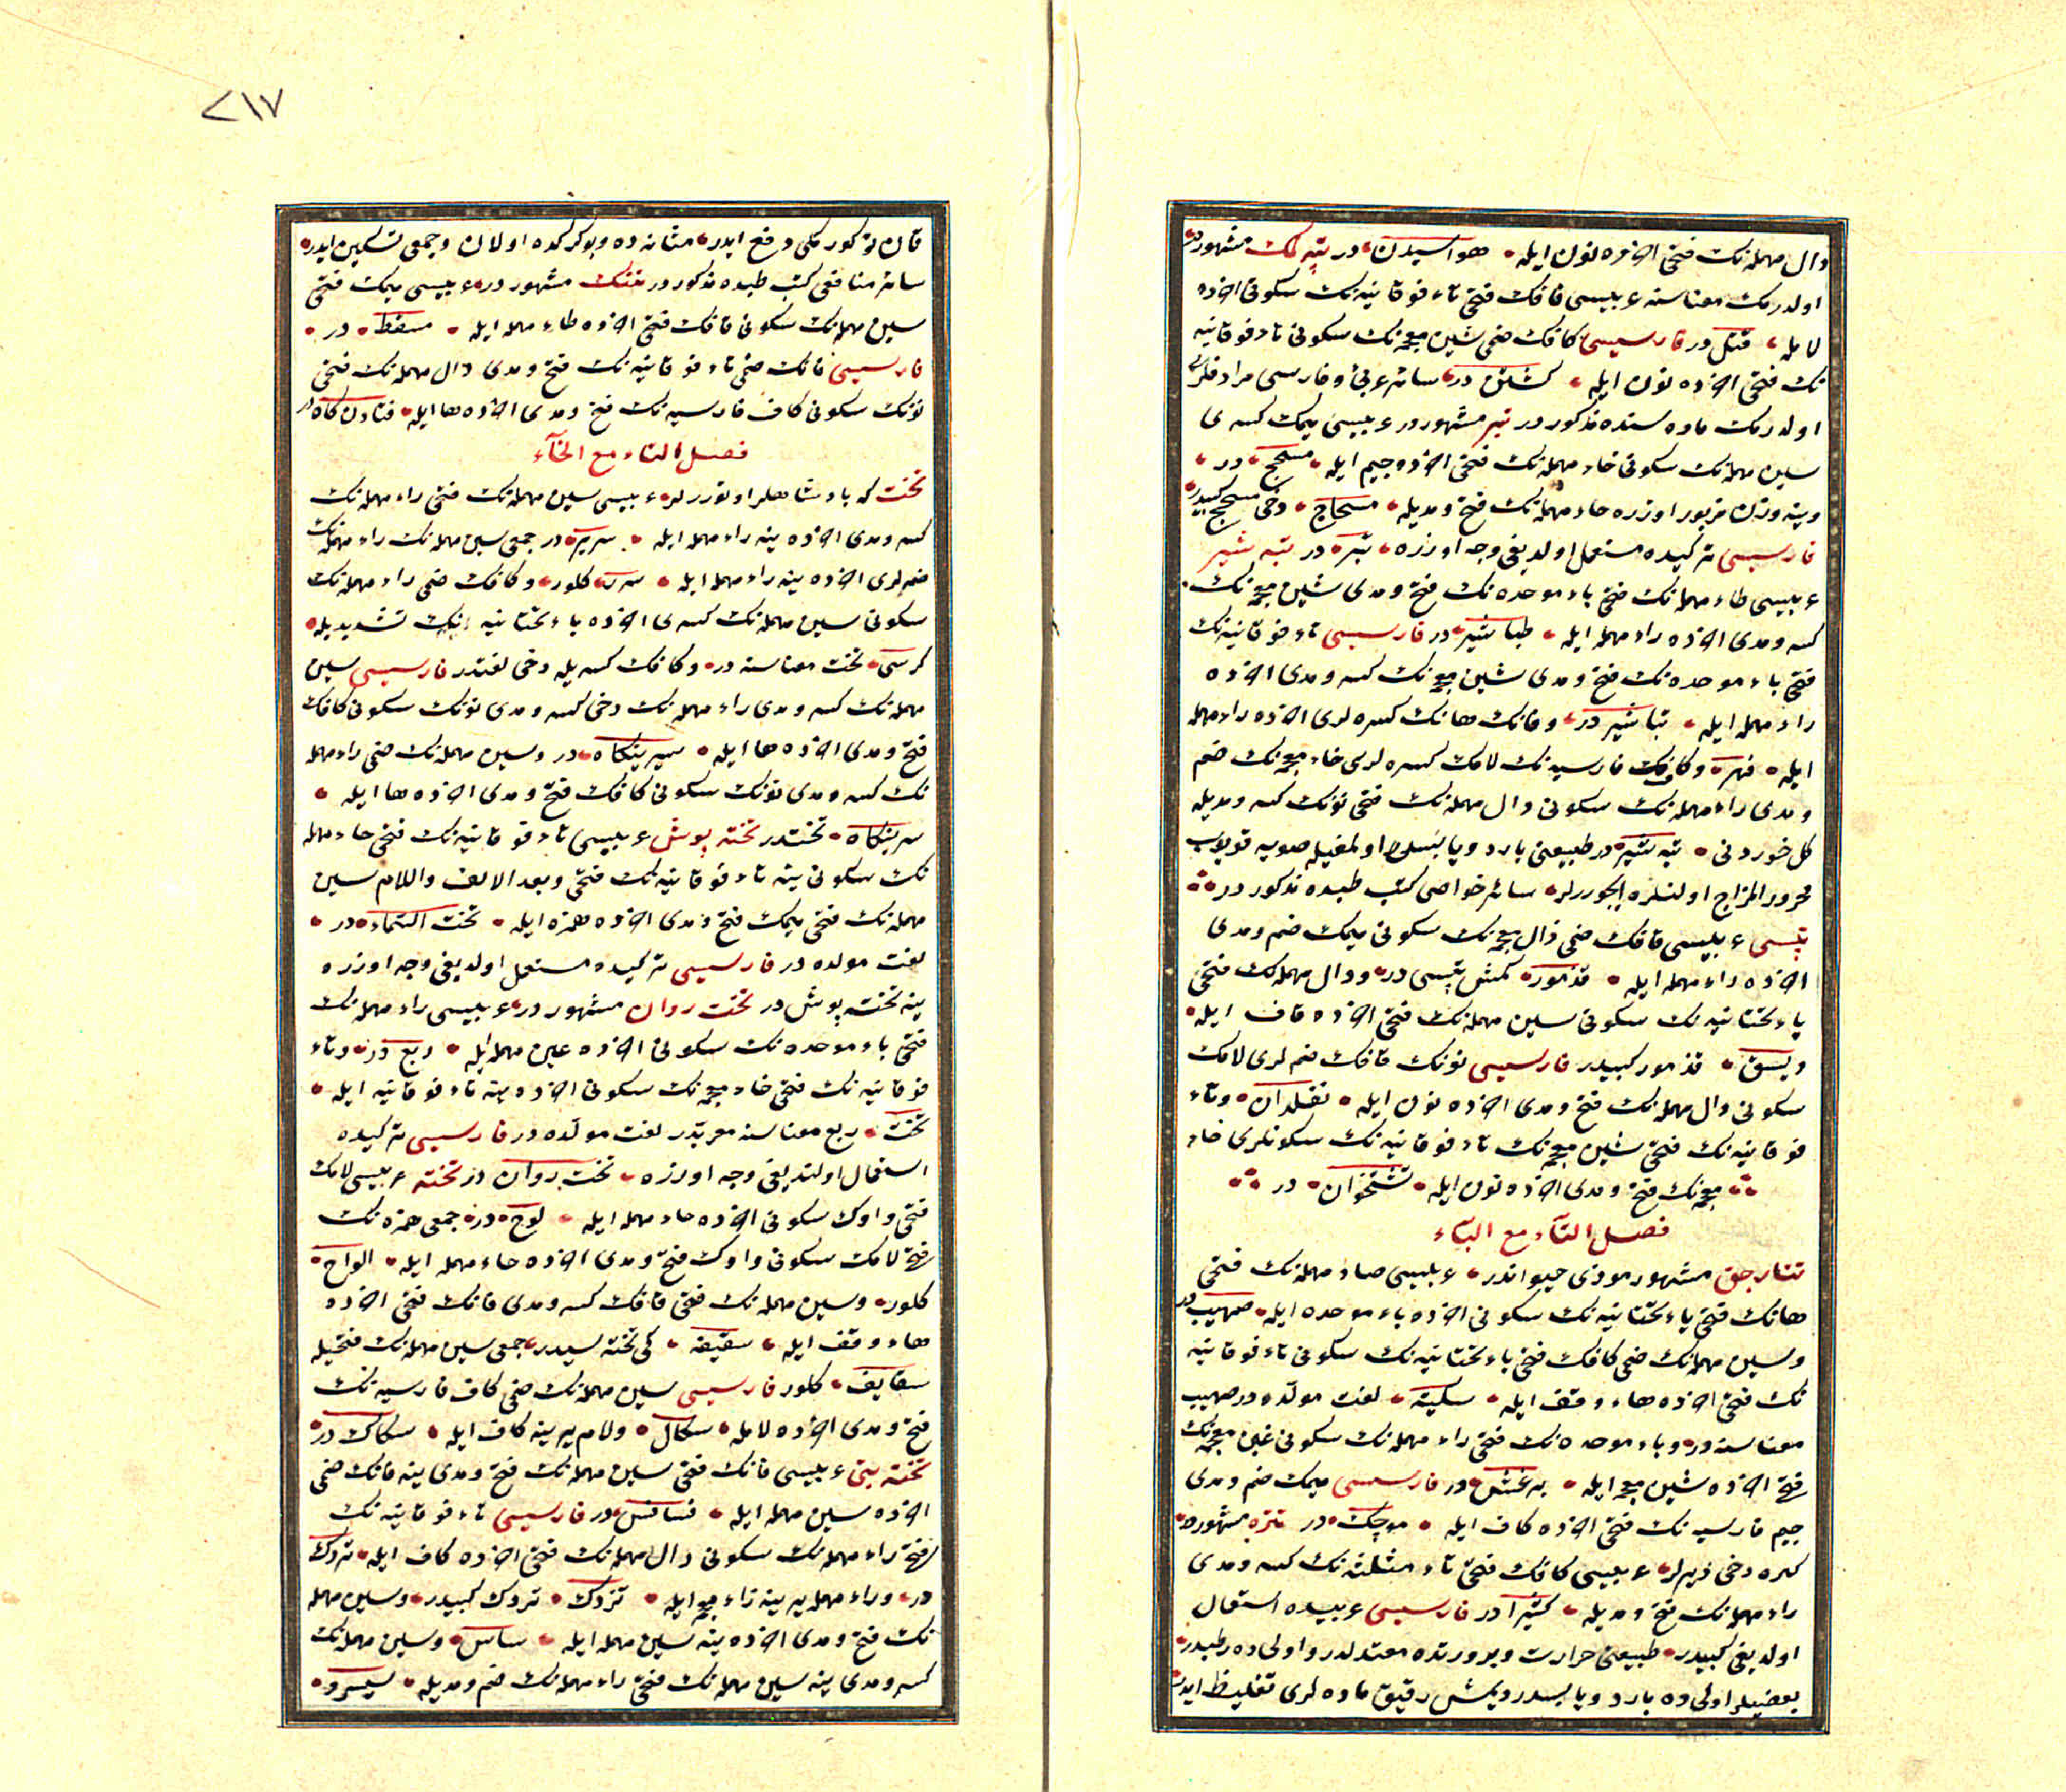 دال مهمله‌نك فتحى آخرده نون ايله هواسيدن در تپه‌لمك مشهور در
اولدرمك معناسنه عربيسى قافك فتحى تاء فوقانيه‌نك سكونى آخرده
لامله قتل در فارسيسى كافك ضمى شين معجمه‌نك سكونى تاء فوقانيه
نك فتحى آخرده نون ايله كشتن در سائر عربى و فارسى مرادفلرى
اولدرمك ماده سنده مذكور در تبر مشهور در عربيسى ميمك كسرى
سين مهمله‌نك سكونى حاء مهمله‌نك فتحى آخرده جيم ايله مسحج در
وينه وزن مزبور اوزره حاء مهمله‌نك فتح و مديله مسحاج دخى مسحج كبيدر
فارسيسى تركيده مستعمل اولديغى وجه اوزره تبر در تبه شير
عربيسى طاء مهمله‌نك فتحى باء موحده‌نك فتح و مدى شين معجمه‌نك
كسر و مدى آخرده راء مهمله ايله طباشير در فارسيسى تاء فوقانيه‌نك
فتحى باء موحده‌نك فتح و مدى شين معجمه‌نك كسر و مدى آخرده
راء مهمله ايله تباشير در وفانك هانك كسره لرى آخرده راء مهمله
ايله فهر وكافك فارسيه‌نك لامك كسره لرى خاء معجمه‌نك ضم
و مدى راء مهمله‌نك سكونى دال مهمله‌نك فتحى نونك كسر و مديله
كل خوردنى تبه شير در طبيعتى بارد و يابسدر اولمغيله صويه قويوب
محرور المزاج اولنلره ايچوررلر سائر خواصى كتب طبده مذكور در
تپسى عربيسى قافك ضمى ذال معجمه‌نك سكونى ميمك ضم و مدى
آخرده راء مهمله ايله قذمور كمش تپسى در ودال مهمله‌نك فتحى
ياء تحتانيه‌نك سكونى سين مهمله‌نك فتحى آخرده قاف ايله
ديسق قذمور كبيدر فارسيسى نونك قافك ضم لرى لامك
سكونى دال مهمله‌نك فتح و مدى آخرده نون ايله نقلدان وتاء
فوقانيه‌نك فتحى شين معجمه‌نك تاء فوقانيه‌نك سكونلرى خاء
معجمه‌نك فتح و مدى آخرده نون ايله تشتخوان در
فصل التاء مع التاء
تتارجق مشهور موذى حيواندر عربيسى صاد مهمله‌نك فتحى
هانك فتحى ياء تحتانيه‌نك سكونى آخرده باء موحده ايله صهيب در
وسين مهمله‌نك ضمى كافك فتحى ياء تحتانيه‌نك سكونى تاء فوقانيه
نك فتحى آخرده هاء وقف ايله سكيته لغت مولده در صهيب
معناسنه در و باء موحده‌نك فتحى راء مهمله‌نك سكونى غين معجمه‌نك
فتح آخرده شين معجمه ايله برغش در فارسيسى ميمك ضم و مدى
جيم فارسيه‌نك فتحى آخرده كاف ايله موچك در تتره مشهور در
كتره دخى ديرلر عربيسى كافك فتحى ثاء مثلثه‌نك كسر و مدى
راء مهمله‌نك فتح و مديله كثيرا در فارسيسى عربيده استعمال
اولديغى كبيدر طبيعتى حرارت و برودتده معتدلدر و اولى ده رطبدر
بعضيلر اولى ده بارد و يابسدر ديمش رقيق ماده لرى تغليظ ايدر
٢١٧
قان توكورمكى دفع ايدر مثانه ده و بوكركده اولان وجعى تسكين ايدر
سائر منافعى كتب طبده مذكور در تتك مشهور در عربيسى ميمك فتحى
سين مهمله‌نك سكونى قافك فتحى آخرده طاء مهمله ايله مسقط در
فارسيسى فانك ضمى تاء فوقانيه‌نك فتح و مدى دال مهمله‌نك فتحى
نونك سكونى كاف فارسيه‌نك فتح و مدى آخرده ها ايله فتادن كاه در
فصل التاء مع الخاء
تخت كه پادشاهلر اوتوررلر عربيسى سين مهمله‌نك فتحى راء مهمله‌نك
كسر و مدى آخرده ينه راء مهمله ايله سرير در جمعى سين مهمله‌نك راء مهمله‌نك
ضم لرى آخرده ينه راء مهمله ايله سرر كلور وكافك ضمى راء مهمله‌نك
سكونى سين مهمله‌نك كسرى آخرده ياء تحتانيه‌نك تشديديله
كرسى تخت معناسنه در وكافك كسريله دخى لغتدر فارسيسى سين
مهمله‌نك كسر و مدى راء مهمله‌نك دخى كسر و مدى نونك سكونى كافك
فتح و مدى آخرده ها ايله سيرينكاه در وسين مهمله‌نك ضمى راء مهمله
نك كسر و مدى نونك سكونى كافك فتح و مدى آخرده ها ايله
سرينكاه تختدر تخته پوش عربيسى تاء فوقانيه‌نك فتحى حاء مهمله
نك سكونى ينه تاء فوقانيه‌نك فتحى وبعد الالف واللام سين
مهمله‌نك فتحى ميمك فتح و مدى آخرده همزه ايله تحت السماء در
لغت مولده در فارسيسى تركيده مستعمل اولديغى وجه اوزره
ينه تخته پوش در تخت روان مشهور در عربيسى راء مهمله‌نك
فتحى باء موحده‌نك سكونى آخرده عين مهمله ايله ربع در وتاء
فوقانيه‌نك فتحى خاء معجمه‌نك سكونى آخرده ينه تاء فوقانيه ايله
تخت ربع معناسنه معربدر لغت مولده در فارسيسى تركيده
استعمال اولنديغى وجه اوزره تخت روان در تخته عربيسى لامك
فتحى واوك سكونى آخرده حاء مهمله ايله لوح در جمعى همزه‌نك
فتح لامك سكونى واوك فتح و مدى آخرده حاء مهمله ايله الواح
كلور وسين مهمله‌نك فتحى قافك كسر و مدى فانك فتحى آخرده
هاء وقف ايله سقيفه كمى تخته سيدر جمعى سين مهمله‌نك فتحيله
سقايف كلور فارسيسى سين مهمله‌نك ضمى كاف فارسيه‌نك
فتح و مدى آخرده لامله سكال ولام يرينه كاف ايله سكاك در
تخته بيتى عربيسى فانك فتحى سين مهمله‌نك فتح و مدى ينه فانك ضمى
آخرده سين مهمله ايله فسافس در فارسيسى تاء فوقانيه‌نك
فتح راء مهمله‌نك سكونى دال مهمله‌نك فتحى آخرده كاف ايله تردك
در وراء مهمله يرينه زاء معجمه ايله تزدك تردك كبيدر وسين مهمله
نك فتح و مدى آخرده ينه سين مهمله ايله ساس وسين مهمله‌نك
كسر و مدى ينه سين مهمله‌نك فتحى راء مهمله‌نك ضم و مديله سيسرو